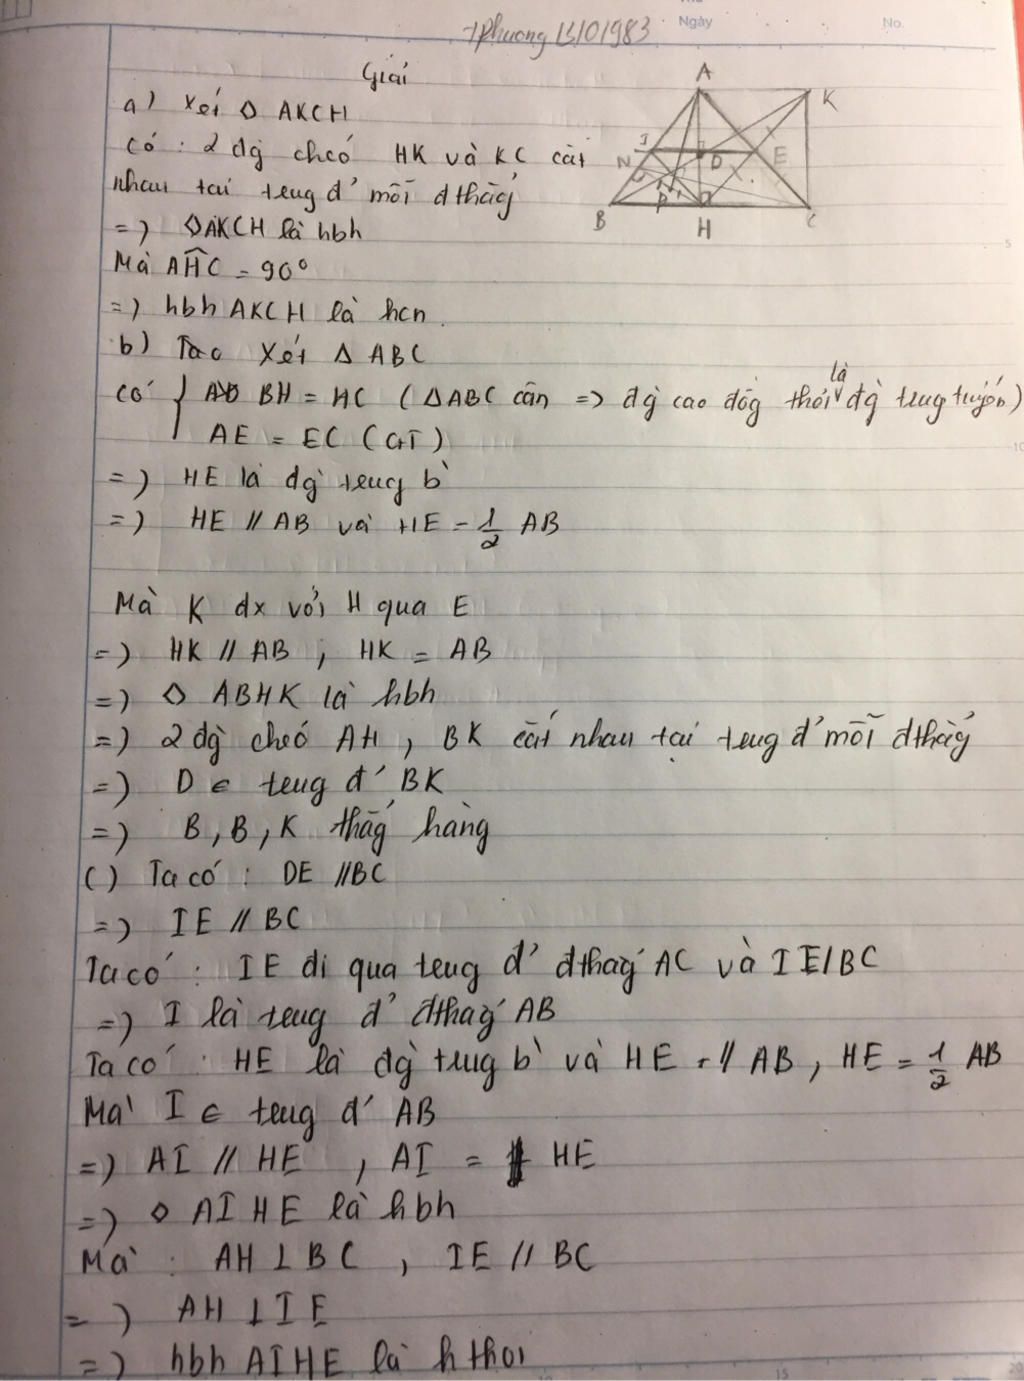 tphuong 13101983
Ngày
No.
Giải
a) Xét ◇ AKCH
Có : 2 đg̀ chéo HK và KC cắt
nhau tại trug đ' mỗi đthẳg
=> ◇AKCH là hbh
Mà AHC = 90°
=> hbh AKCH là hcn.
b) Xét Δ ABC
có { BH = HC (ΔABC cân => đg̀ cao đồg thời là đg̀ trug tuyến)
AE = EC (GT)
=> HE là đg̀ trug b̀
=> HE // AB và HE = 1/2 AB
Mà K dx với H qua E
=> HK // AB , HK = AB
=> ◇ ABHK là hbh
=> 2 đg̀ chéo AH, BK cắt nhau tại trug đ' mỗi đthẳg
=> D ∈ trug đ' BK
=> B, B, K thẳg hàng
c) Ta có : DE //BC
=> IE // BC
Ta có : IE đi qua trug đ' đthẳg AC và IE//BC
=> I là trug đ' đthẳg AB
Ta có : HE là đg̀ trug b̀ và HE // AB, HE = 1/2 AB
Mà I ∈ trug đ' AB
=> AI // HE , AI = HE
=> ◇ AIHE là hbh
Mà : AH ⊥ BC , IE // BC
=> AH ⊥ IE
=> hbh AIHE là h thoi
A
K
I
N
D
E
B
P
H
C
5
10
15
20